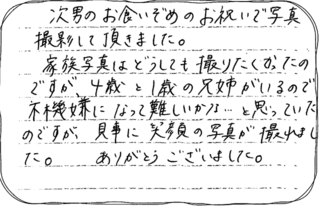 次男のお食いぞめのお祝いで写真
撮影して頂きました。
家族写真はどうしても撮りたくなったの
ですが、4歳と1歳の兄姉がいるので
不機嫌になって難しいかな…と思っていた
のですが、見事に笑顔の写真が撮れまし
た。 ありがとうございました。